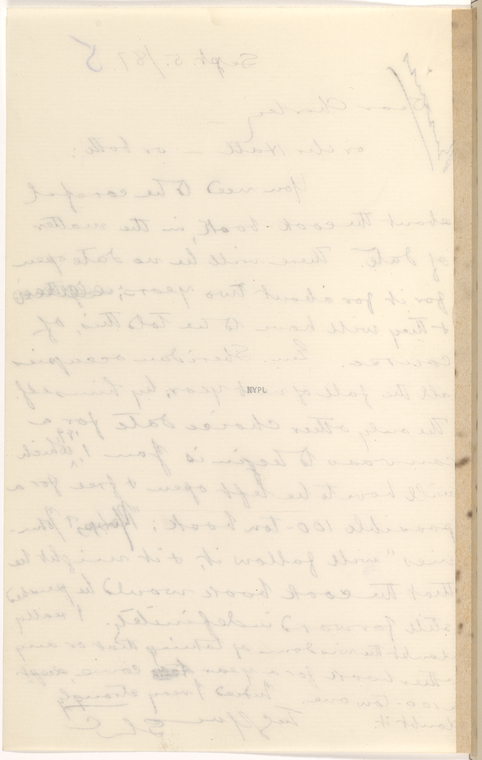 Sept. 5./87.
Dear Charley —
or Mr. Hall — or both:
You need to be careful
about the cook-book, in the matter
of date. There will be no date open
for it for about two years;
& they will have to be told this, of
course. Gen. Sheridan occupies
all the fall of next year, by himself.
The only other choice date for a
canvass to begin is Jan. 1, which
will have to be left open & free for a
possible 100-ton book;
will follow it, & it might be
that the cook book would be pushed
still forward indefinitely. I really
doubt the wisdom of taking that or any
other book for a year to come, except
100-ton ones. Indeed I very strongly
doubt it.
SLC
NYPL